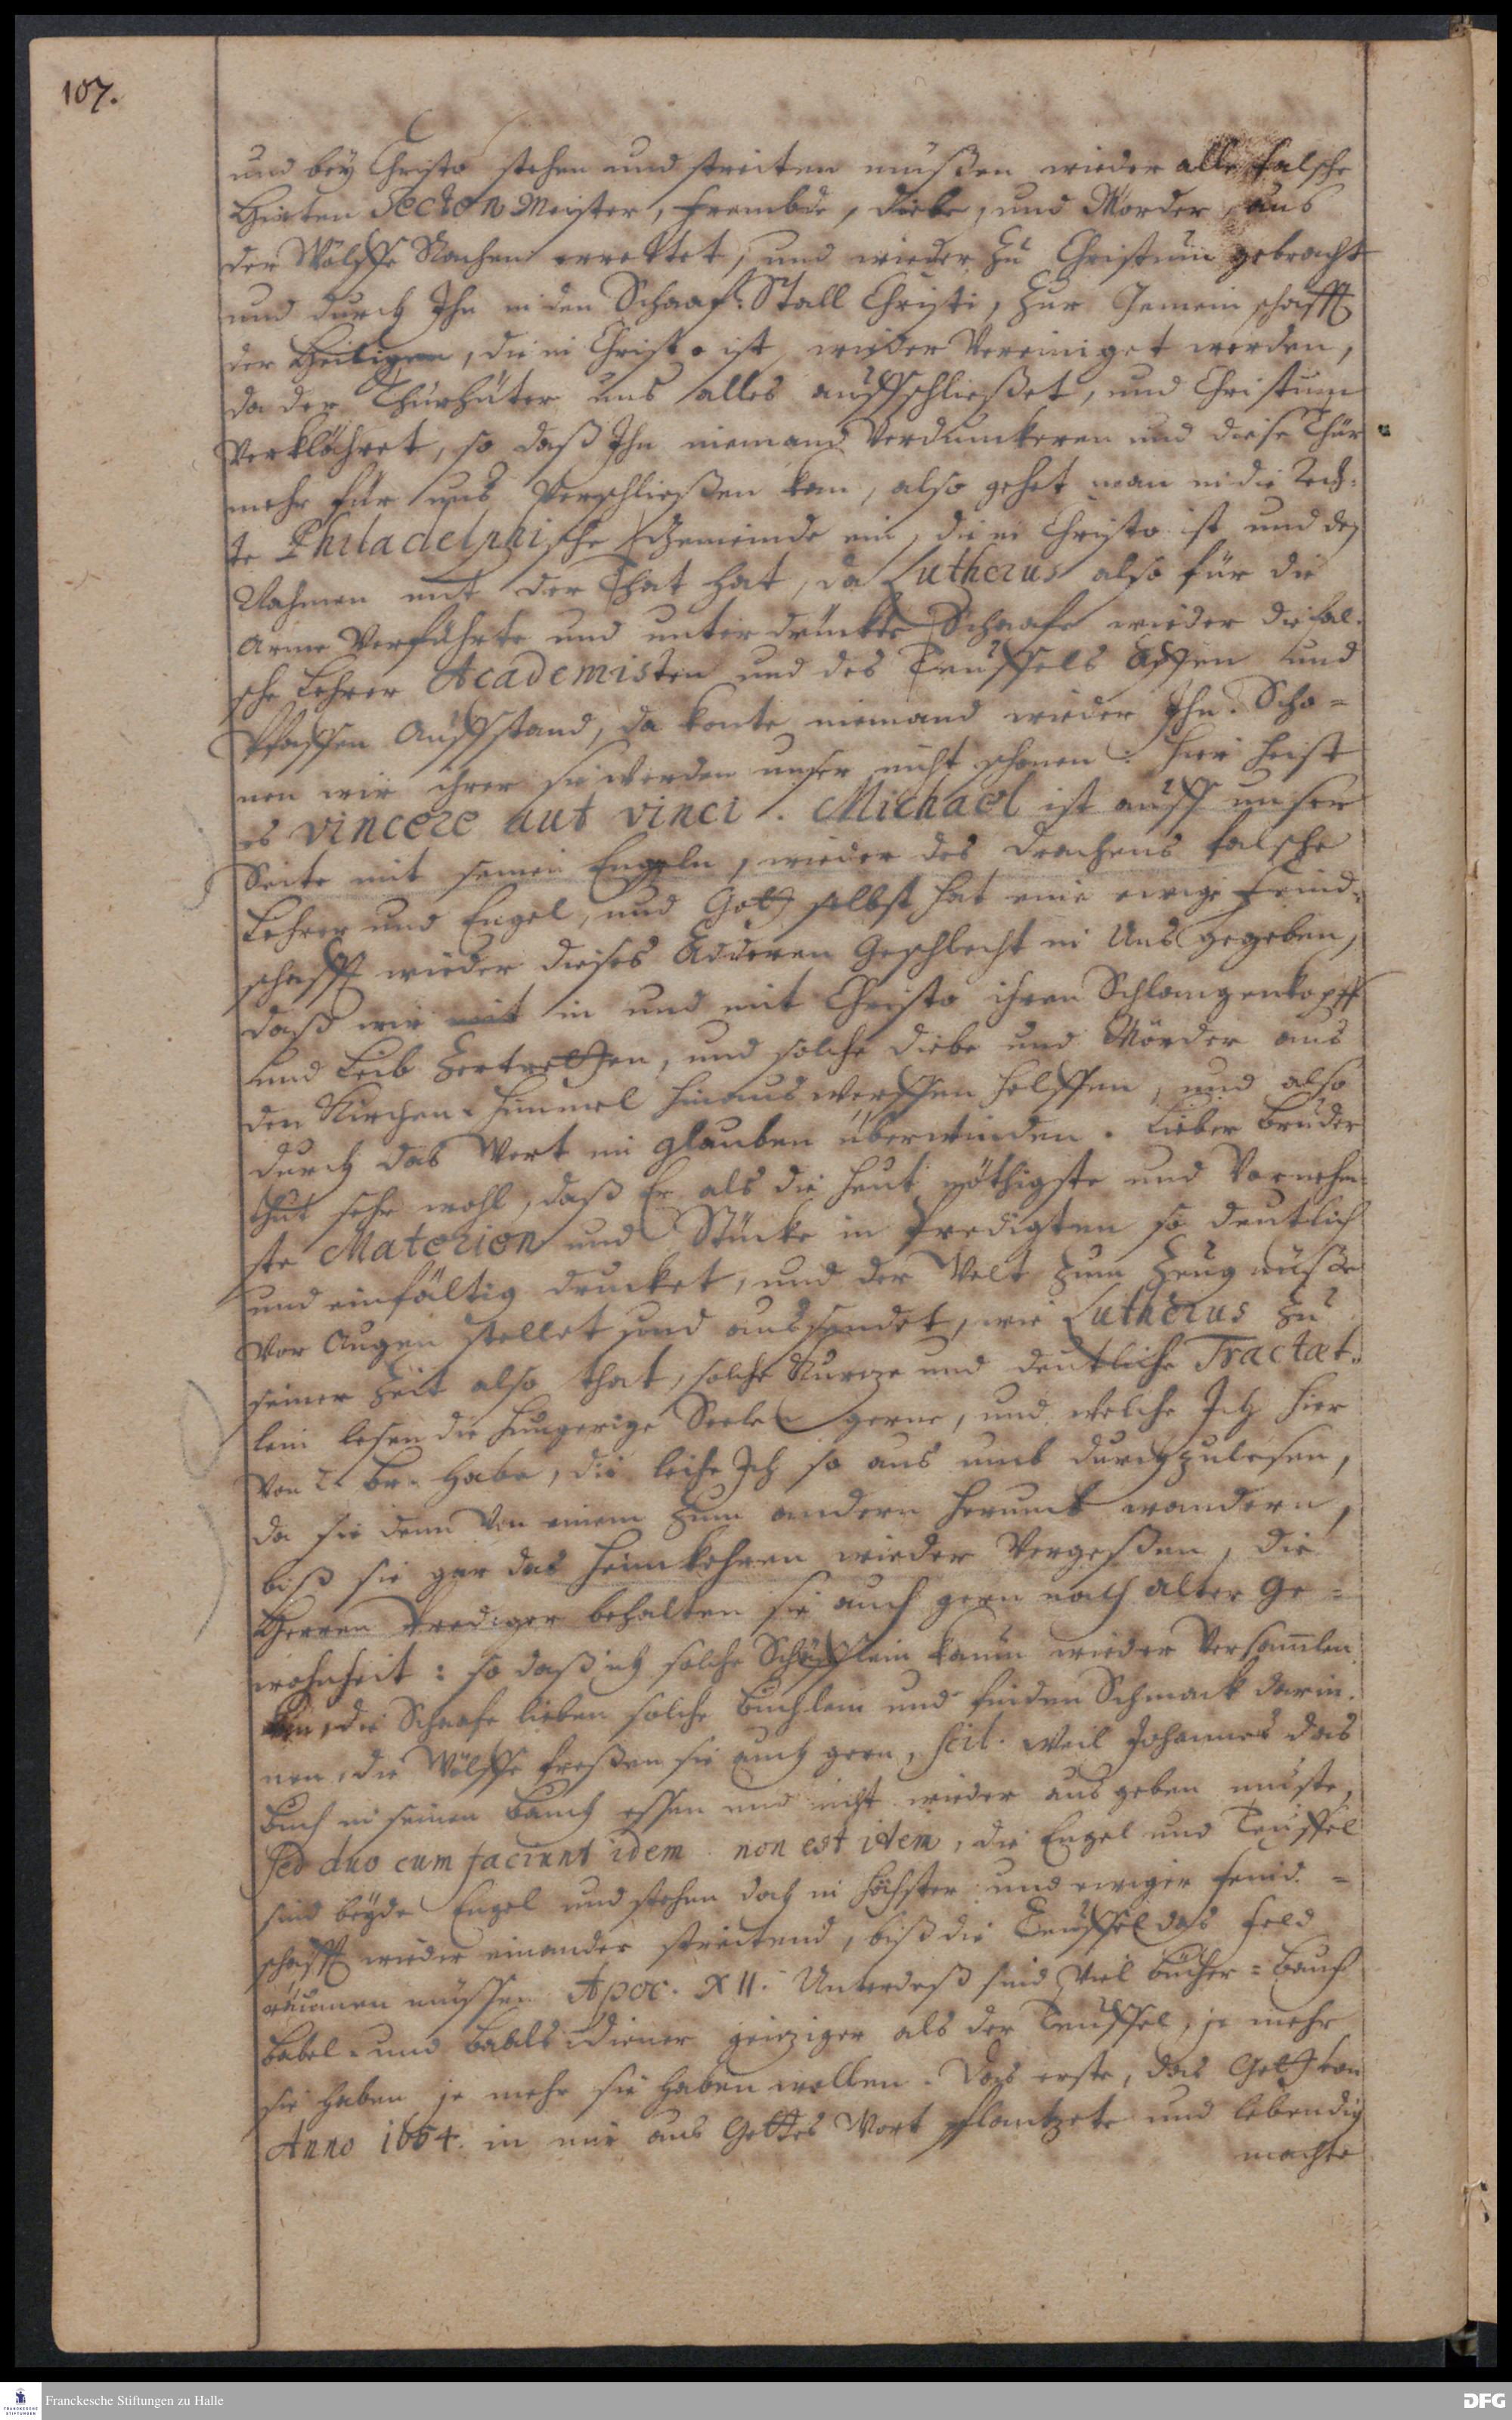 107.
und beÿ Christo stehen und streiten müßen wieder alle falsche
Hirten Secten Meister, frembde, diebe, und Mörder, aus
der Wölffe Rachen errettet, und wieder zu Christum gebracht
und durch Ihn in den Schaaf-Stall Christi, zur Gemeinschafft
der Heiligen, die in Christo ist, wieder Vereiniget werden,
da der Thürhüter uns alles auffschließet, und Christum
Verklähret, so daß Ihn niemand Verdunckeren und diese Thür
mehr für uns Verschließen kan, also gehet man in die Rech-
te Philadelphische Gemeinde ein, die in Christo ist und den
Nahmen mit der That hat, da Lutherus also für die
arme Verführte und unterdrückte Schaafe wieder die fal-
sche Lehrer Academisten und des Teuffels Affen und
Pfaffen Auffstand, da konte niemand wieder Ihn. Scho=
nen wir ihrer sie werden unser nicht schonen: hier heist
es vincere aut vinci. Michael ist auff unser
Seite mit seinen Engeln, wieder des Drachens falsche
Lehrer und Engel, und Gott selbst hat eine ewige feind-
schafft wieder dieses Adderen Geschlecht in Uns gegeben,
daß wir mit in und mit Christo ihren Schlangenkopff
und Leib zertretten, und solche diebe und Mörder aus
den Kirchen-himmel hinaus werffen helffen, und also
durch das Wort im glauben überwinden. Lieber Bruder
thut sehr wohl, daß Er als die heut nöthigste und Vornehm-
ste Materien und Stücke in Predigten so deutlich
und einfältig drucket, und der Welt zum Zeugnüße
vor Augen stellet und aussendet, wie Lutherus zu
seiner Zeit also that, solche Kurtze und deutliche Tractæt-
lein lesen die hungerige Seelen gerne, und welche Ich hier
von L. Br. habe, die leihe Ich so aus umb durchzulesen,
da sie denn von einem zum andern herumb wandern,
biß sie gar das heimkehren wieder Vergeßen, die
Herren Prediger behalten sie auch gern nach alter Ge=
wohnheit: so daß ich solche Schäfflein kaum wieder Versammlen
kan, die Schaafe lieben solche büchlein und finden Schmack darin-
nen, die Wölffe freßen sie auch gern, scil. weil Johannes das
buch in seinen bauch essen und nicht wieder ausgeben muste,
sed duo cum faciunt idem non est idem, die Engel und Teuffel
sind beÿde Engel und stehen doch in höchster und ewiger feind=
schafft wieder einander streitend, biß die Teuffel das feld
räumen müssen Apoc. XII. Unterdeß sind viel bücher=bauch
babel- und baals diener geitziger als der Teuffel, je mehr
sie haben je mehr sie haben wollen. Das erste, das Gott von
Anno 1664. in mir aus Gottes Wort pflantzete und lebendig
machte
Franckesche Stiftungen zu Halle
DFG